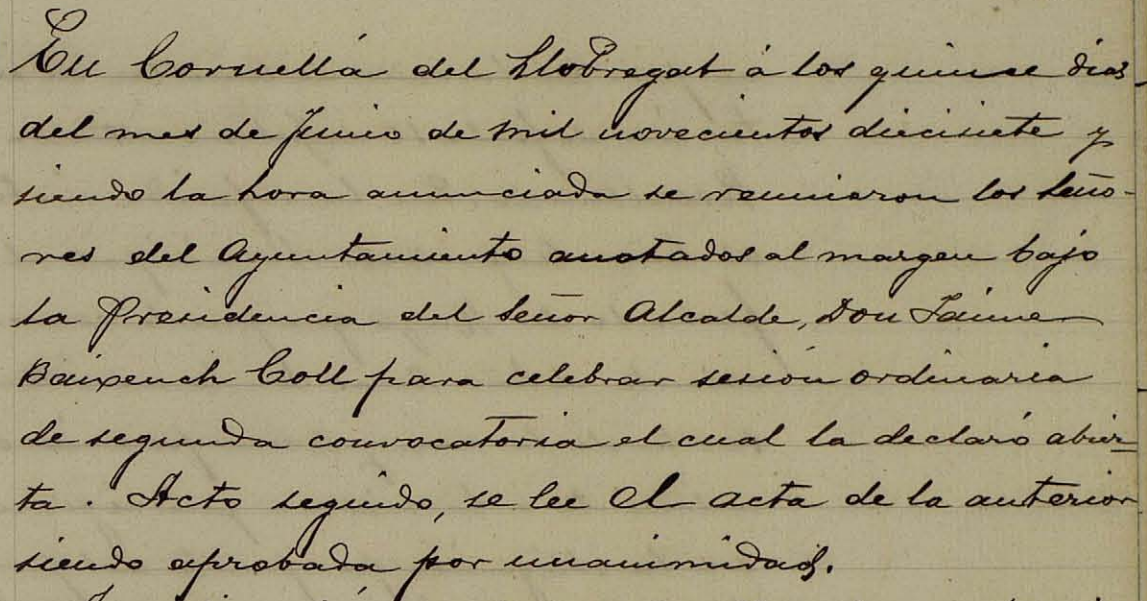 En Cornellá del Llobregat á los quinse dias
del mes de Junio de mil novecientos diecisiete y
siendo la hora anunciada se reunieron los Seño-
res del Ayuntamiento anotados al margen bajo
la Presidencia del Señor Alcalde, Don Jaime
Baixench Coll para celebrar sesión ordinaria
de segunda convocatoria el cual la declaró abier
ta. Acto seguido, se lee el acta de la anterior
siendo aprobada por unanimidad.